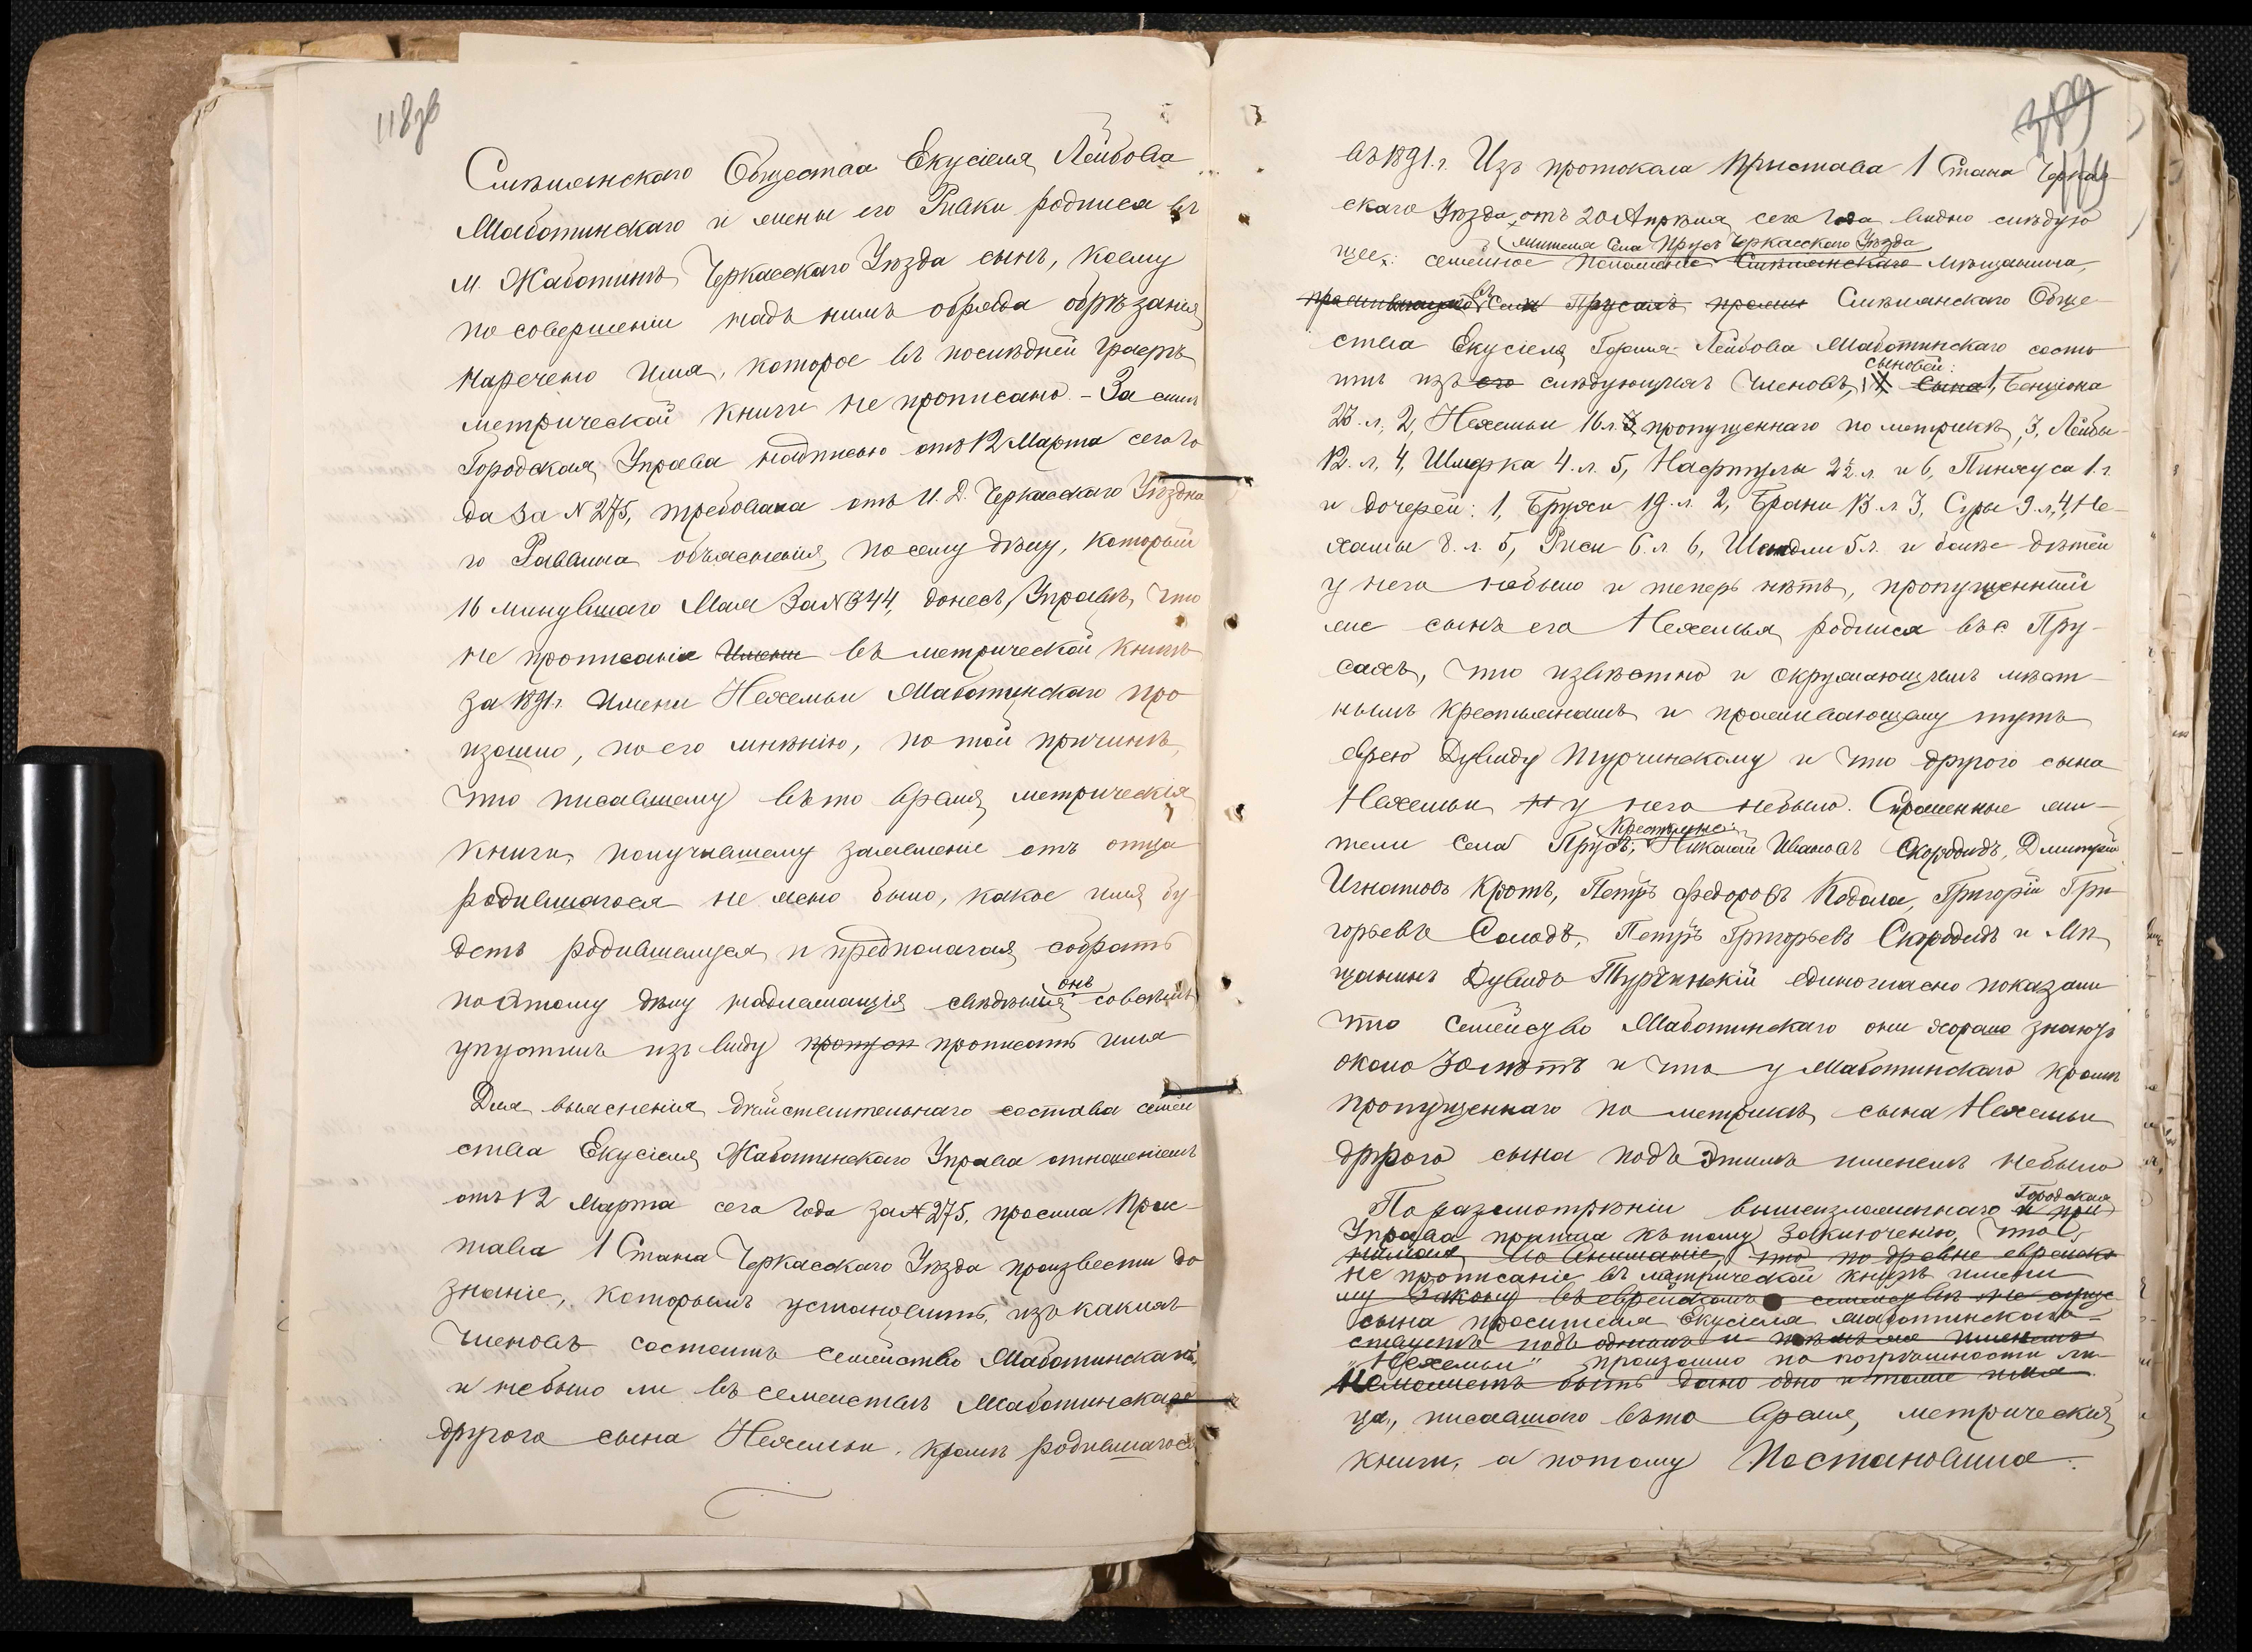 118 об
Смѣлянскаго Общества Екусіеля Лейбова
Жаботинскаго и жены его Ривки родился въ
м. Жаботинѣ Черкасскаго Уѣзда сынъ, коему
по совершеніи надъ нимъ обряда обрѣзанія
наречено имя, которое въ послѣдней графѣ
метрической книги не прописано. – За симъ
Городская Управа надписью отъ 12 Марта сего го
да за № 275, требовала отъ И. Д. Черкасскаго Уѣздна
го Раввина объясненія по сему дѣлу, который
16 минувшаго Мая за № 344, донесъ Управѣ, что
не прописаніе имени въ метрической книгѣ
за 1891 г. имени Нехемьи Жаботинскаго про
изошло, по его мнѣнію, по той причинѣ,
что писавшему въ то время метрическія
книги, получившему заявленіе отъ отца
родившагося не ясно было, какое имя бу
детъ родившемуся и предполагая собрать
по этому дѣлу надлежащія свѣдѣнія онъ совсѣмъ
упустилъ изъ виду прописать имя
Для выясненія дѣйствительнаго состава семей
ства Екусіеля Жаботинскаго Управа отношеніемъ
отъ 12 Марта сего года за № 275, просила Прис-
тава 1 Стана Черкасскаго Уѣзда произвести до
знаніе, которымъ установить, изъ какихъ
членовъ состоитъ семейство Жаботинскаго,
и небыло ли въ семействѣ Жаботинскаго
другого сына Нехемьи, кромѣ родившагося
119
въ 1891. г. Изъ протокола Пристава 1 Стана Черкас
скаго Уѣзда, отъ 20 Апрѣля сего года видно слѣдую
жителя Села Прусъ Черкасскаго Уѣзда
щее: семейное положеніе Смѣлянскаго мѣщанина,
проживающаго въ Селѣ Прусахъ Смѣлянскаго Обще
ства Екусіеля Лейбова Жаботинскаго состо
сыновей:
итъ изъ его слѣдующихъ членовъ, сына 1, Бенціона
23 л, 2, Нехемьи 16 л. пропущеннаго по метрикѣ, 3, Лейбы
12. л, 4, 4. л. 5, Нафтулы 2½ л. и 6, Пинхуса 1. г.
и дочерей: 1, Брухи 19. л. 2, Брани 13. л 3, Суры 9. л, 4, Не-
хамы 8. л. 5, Риси 6. л 6, Шендли 5 л. и болѣе дѣтей
у него небыло и теперь нѣтъ, пропущенный
же сынъ его Нехемья родился въ с. Пру-
сахъ, что извѣстно и окружающимъ мѣст-
нымъ крестьянамъ и проживающему тутъ
еврею Дувиду Турчинскому и что другого сына
Нехемьи у него небыло. Спрошенные жи-
Крестьяне:
тели села Прусъ, Николай Ивановъ Скородидъ, Дмитрій
Игнатовъ Кротъ, Петръ Федоровъ Кодола, Григорій Гри
горьевъ Солодъ, Петръ Григорьевъ Скородидъ и Мѣ
щанинъ Дувидъ Турчинскій единогласно показали
что семейство Жаботинскаго они хорошо знаютъ
около 30 лѣтъ и что у Жаботинскаго кромѣ
пропущеннаго по метрикѣ, сына Нехемьи
другого сына подъ этимъ именемъ небыло
По разсмотрѣніи вышеизложеннаго и при Городская
Управа пришла къ тому заключенію, что
нимая во вниманіе, что по древне еврейско
не прописаніе въ метрической книгѣ имени
му закону въ еврейскомъ семействѣ не суще
сына просителя Екусіеля Жаботинскаго –
ствуетъ подъ однимъ и тѣмъ же именемъ
"Нехемьи" произошло по погрѣшности ли-
неможетъ быть дано одно и тоже имя
ца, писавшаго въ то время, метрическія
книги, а потому Постановила: